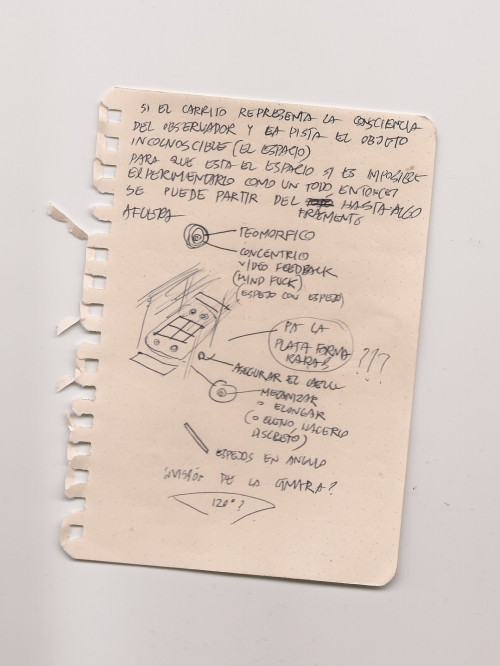 SI EL CARRITO REPRESENTA LA CONSCIENCIA
DEL OBSERVADOR Y LA PISTA EL OBJETO
INCOGNOSCIBLE (EL ESPACIO)
PARA QUE ESTA EL ESPACIO SI ES IMPOSIBLE
EXPERIMENTARLO COMO UN TODO ENTONCES
SE PUEDE PARTIR DEL HASTA ALGO
FRAGMENTO
AFUERA
TEOMORFICO
CONCENTRICO
VIDEO FEEDBACK
(MIND FUCK)
(ESPEJO CON ESPEJO)
PA LA
PLATAFORMA
???
ASEGURAR EL
MECANIZAR
O ELONGAR
(O HACERLO
DISCRETO)
ESPEJOS EN ANGULO
DE LA CAMARA?
120°?